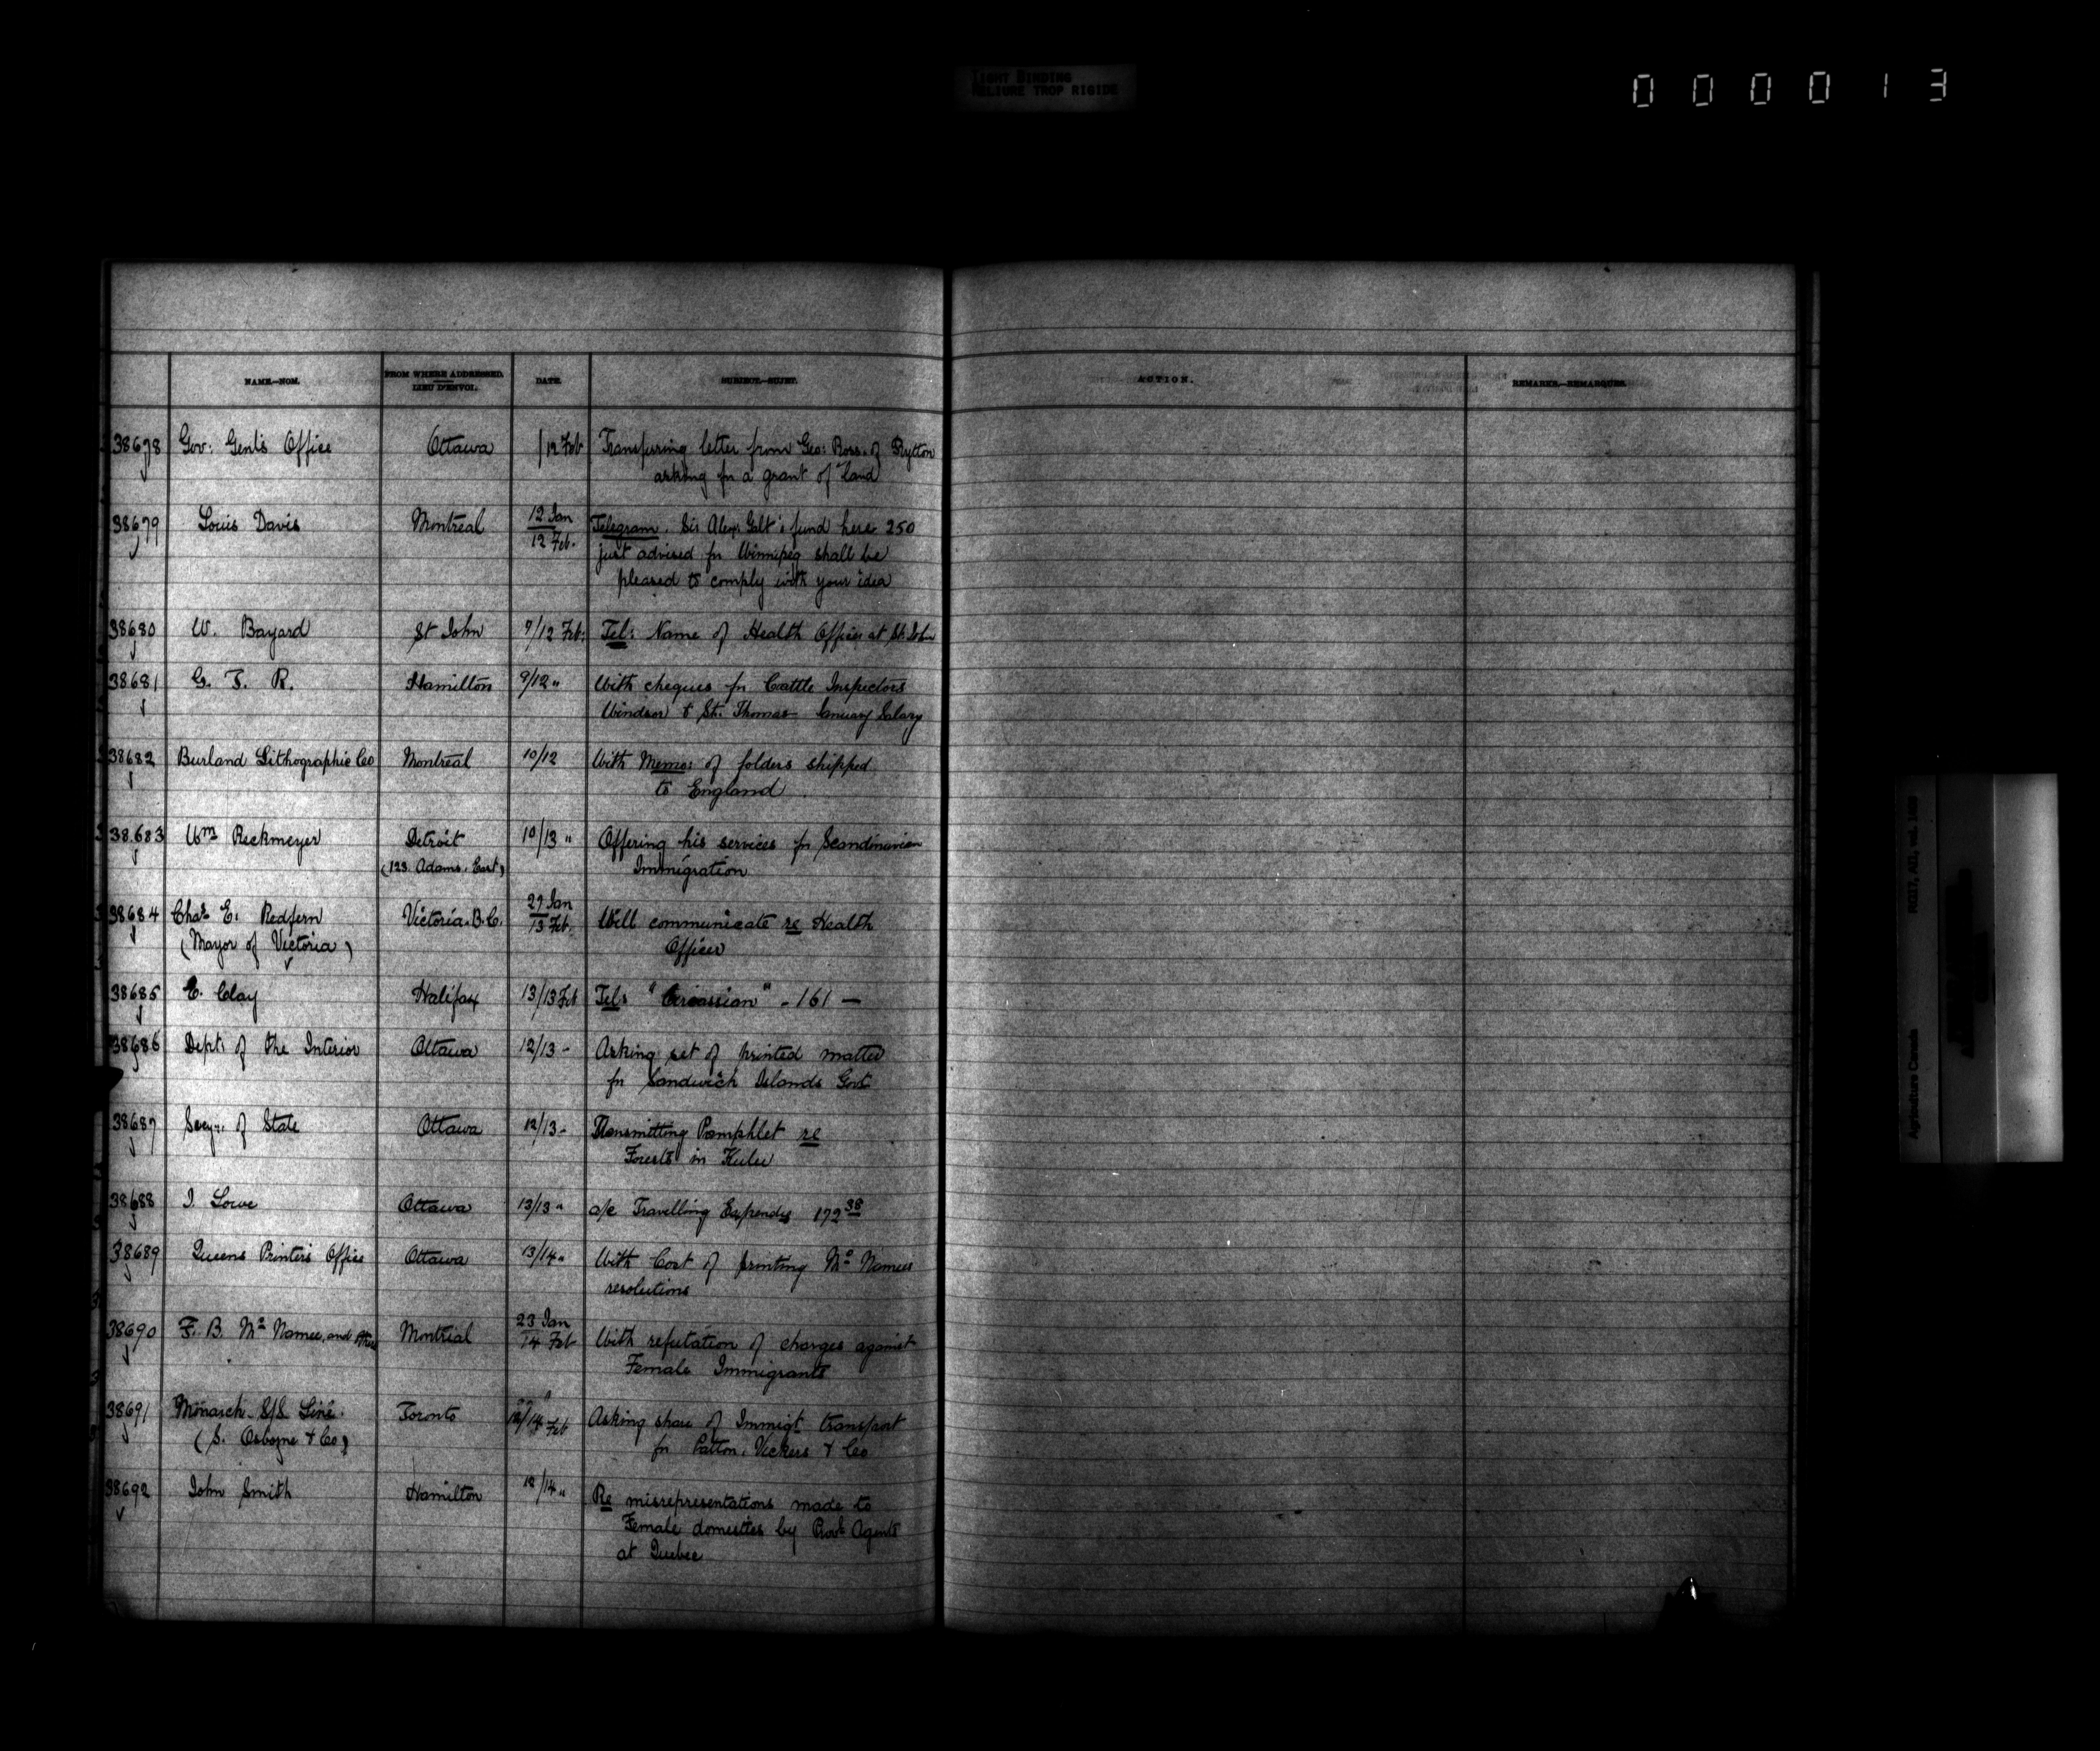 TIGHT BINDING
RELIURE TROP RIGIDE
000013
NAME.—NOM.
FROM WHERE ADDRESSED.
LIEU D'ENVOI.
DATE.
SUBJECT.—SUJET.
ACTION.
REMARKS.—REMARQUES.
38678 Gov: Genl's Office Ottawa /12 Feb Transferring letter from Geo: Ross of
asking for a grant of land
38679 Louis Davis Montreal 12 Jan Telegram. Sir Alexr Galt's fund here 250
12 Feb. just advised for Winnipeg shall be
pleased to comply with your idea
38680 W. Bayard St John 9/12 Feb: Tel: Name of Health Officer at St. John
38681 G. T. R. Hamilton 9/12 " With cheques for Cattle Inspectors
Windsor & St. Thomas January Salary
38682 Burland Lithographic Co Montreal 10/12 With Memo: of folders shipped
to England
38683 Wm Reckmeyer Detroit 10/13 " Offering his services for Scandinavian
(123 Adams. East) Immigration
38684 Chas E. Redfern Victoria. B.C. 27 Jan
13 Feb. Will communicate re Health
(Mayor of Victoria) Officer
38685 E. Clay Halifax 13/13 Feb Tel: "Circassian" - 161 —
38686 Dept: of the Interior Ottawa 12/13 - Asking set of printed matter
for Sandwich Islands Govt
38687 Secy: of State Ottawa 12/13 - Transmitting Pamphlet re
Forests in Kulu
38688 J. Lowe Ottawa 13/13 " a/c Travelling Expenses 172 38
38689 Queens Printer's Office Ottawa 13/14 " With Cost of printing Mc Namees
resolutions
38690 F. B. Mc Namee, and others Montreal 23 Jan
14 Feb With refutation of charges against
Female Immigrants
38691 Monarch S/S Line. Toronto 12/14 Feb Asking share of Immigt transport
(S. Osborne & Co) for Patton, Vickers & Co
38692 John Smith Hamilton 12/14 " Re misrepresentations made to
Female domestics by Provl Agents
at Quebec
RG17, AII, vol.
Agriculture Canada